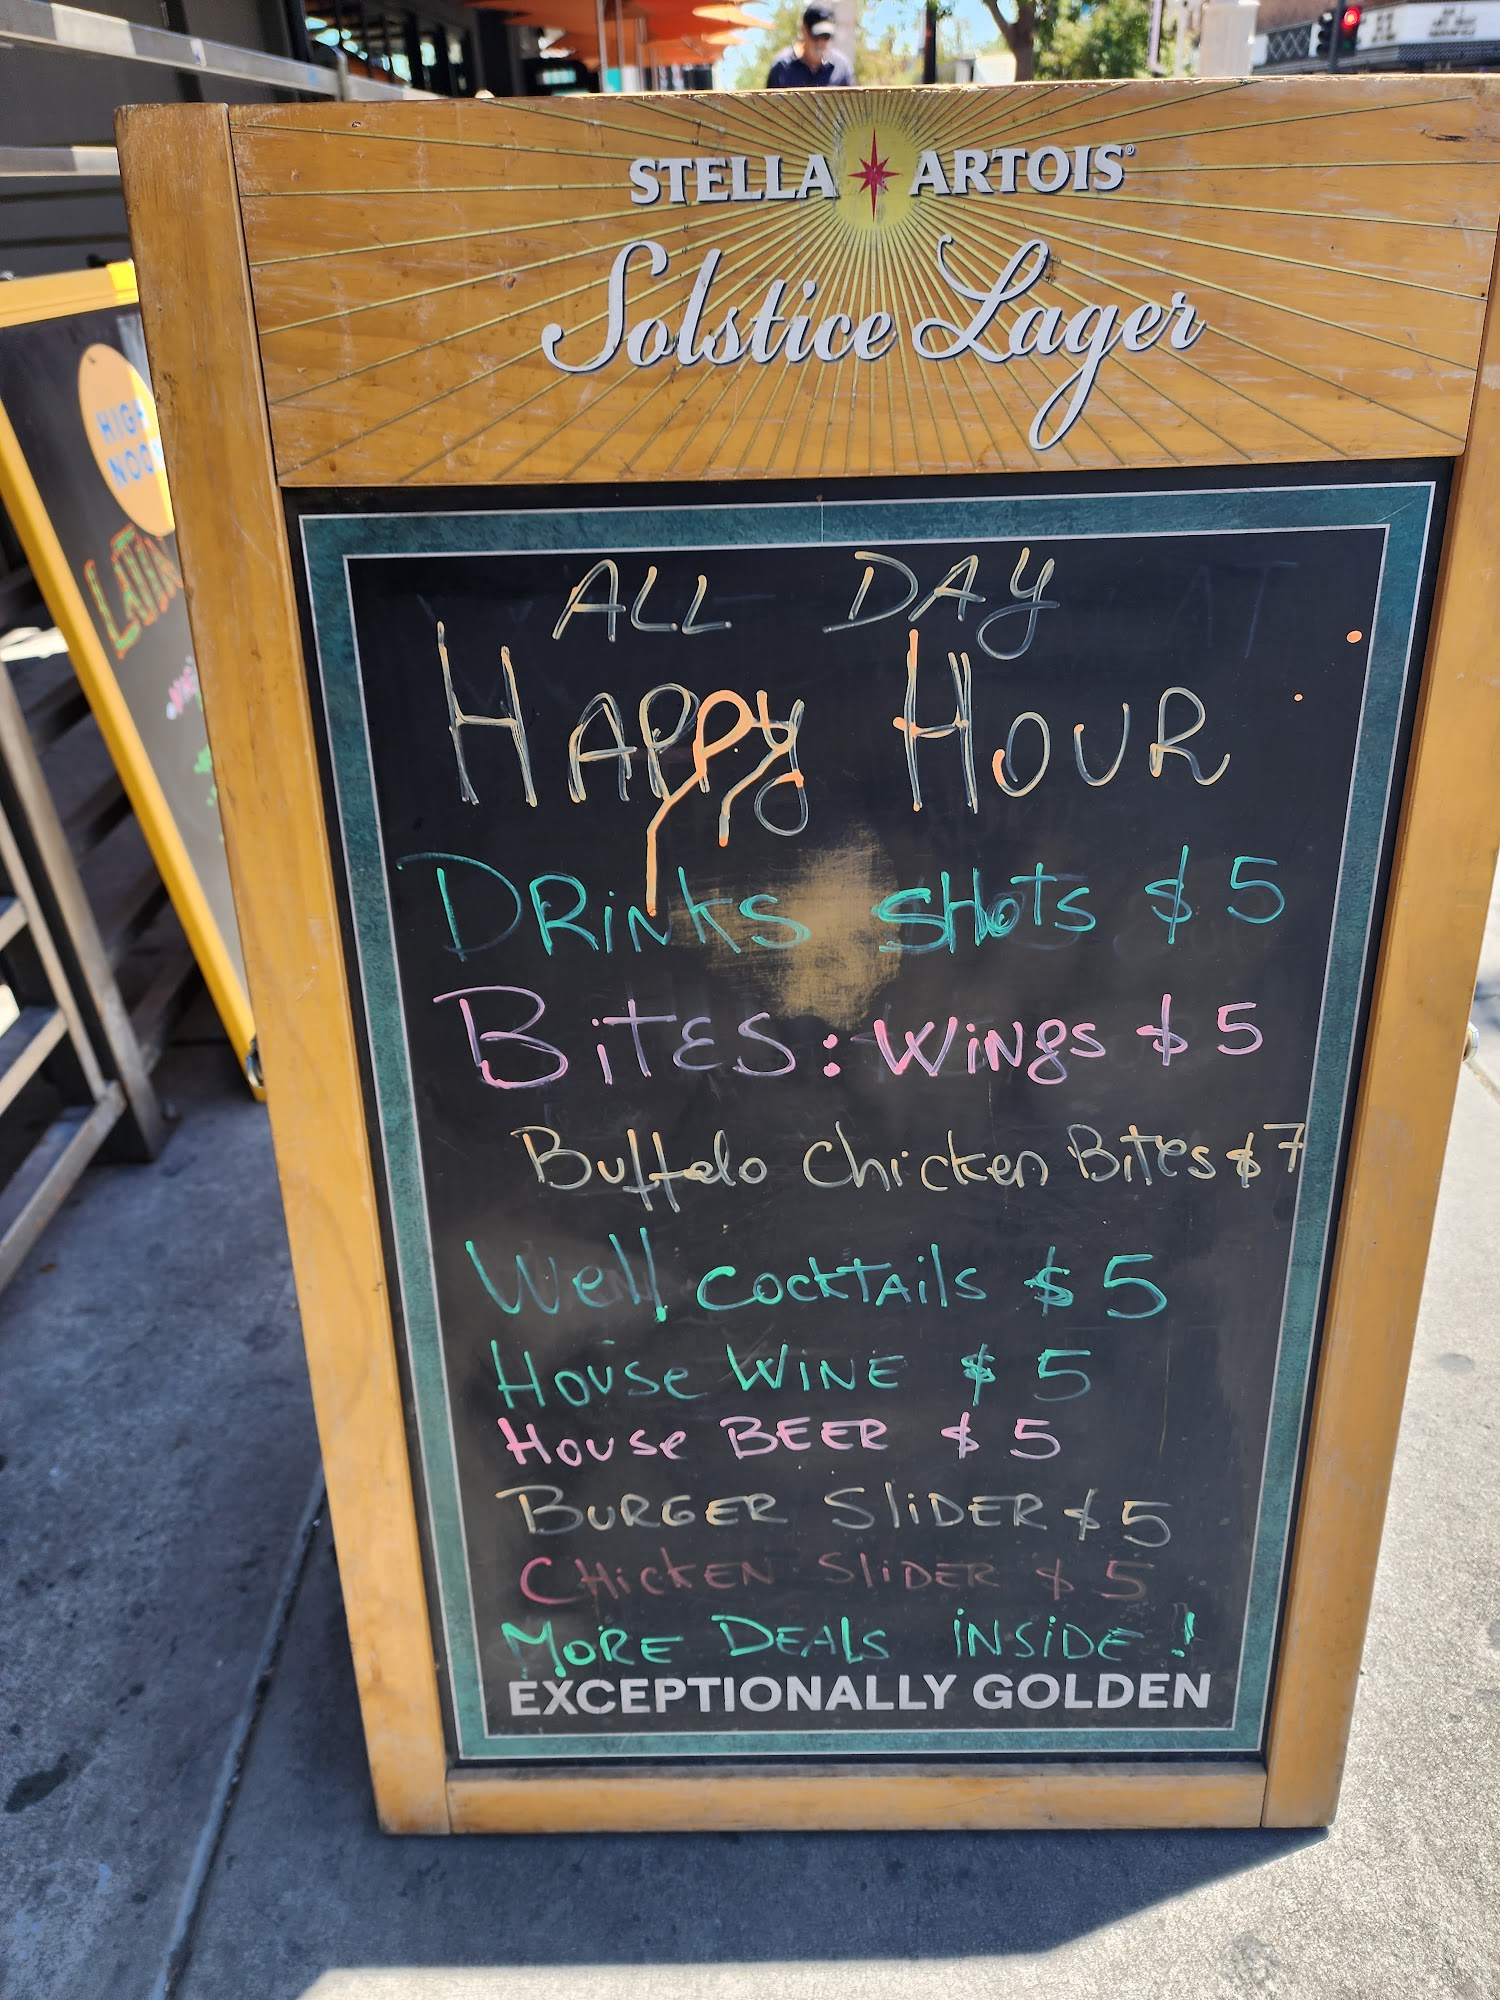 STELLA ARTOIS®
Solstice Lager
HIGH
NOO
LATIN
ALL DAY
HAPPY HOUR
DRiNKS SHOTS $5
BiTES: WiNGS $5
Buffalo Chicken BiTes $7
Well COCKTAilS $5
HOUSe WiNE $5
HOUSe BEER $5
BURGER SliDER $5
CHiCKEN SliDER $5
MORE DEALS iNSiDE!
EXCEPTIONALLY GOLDEN